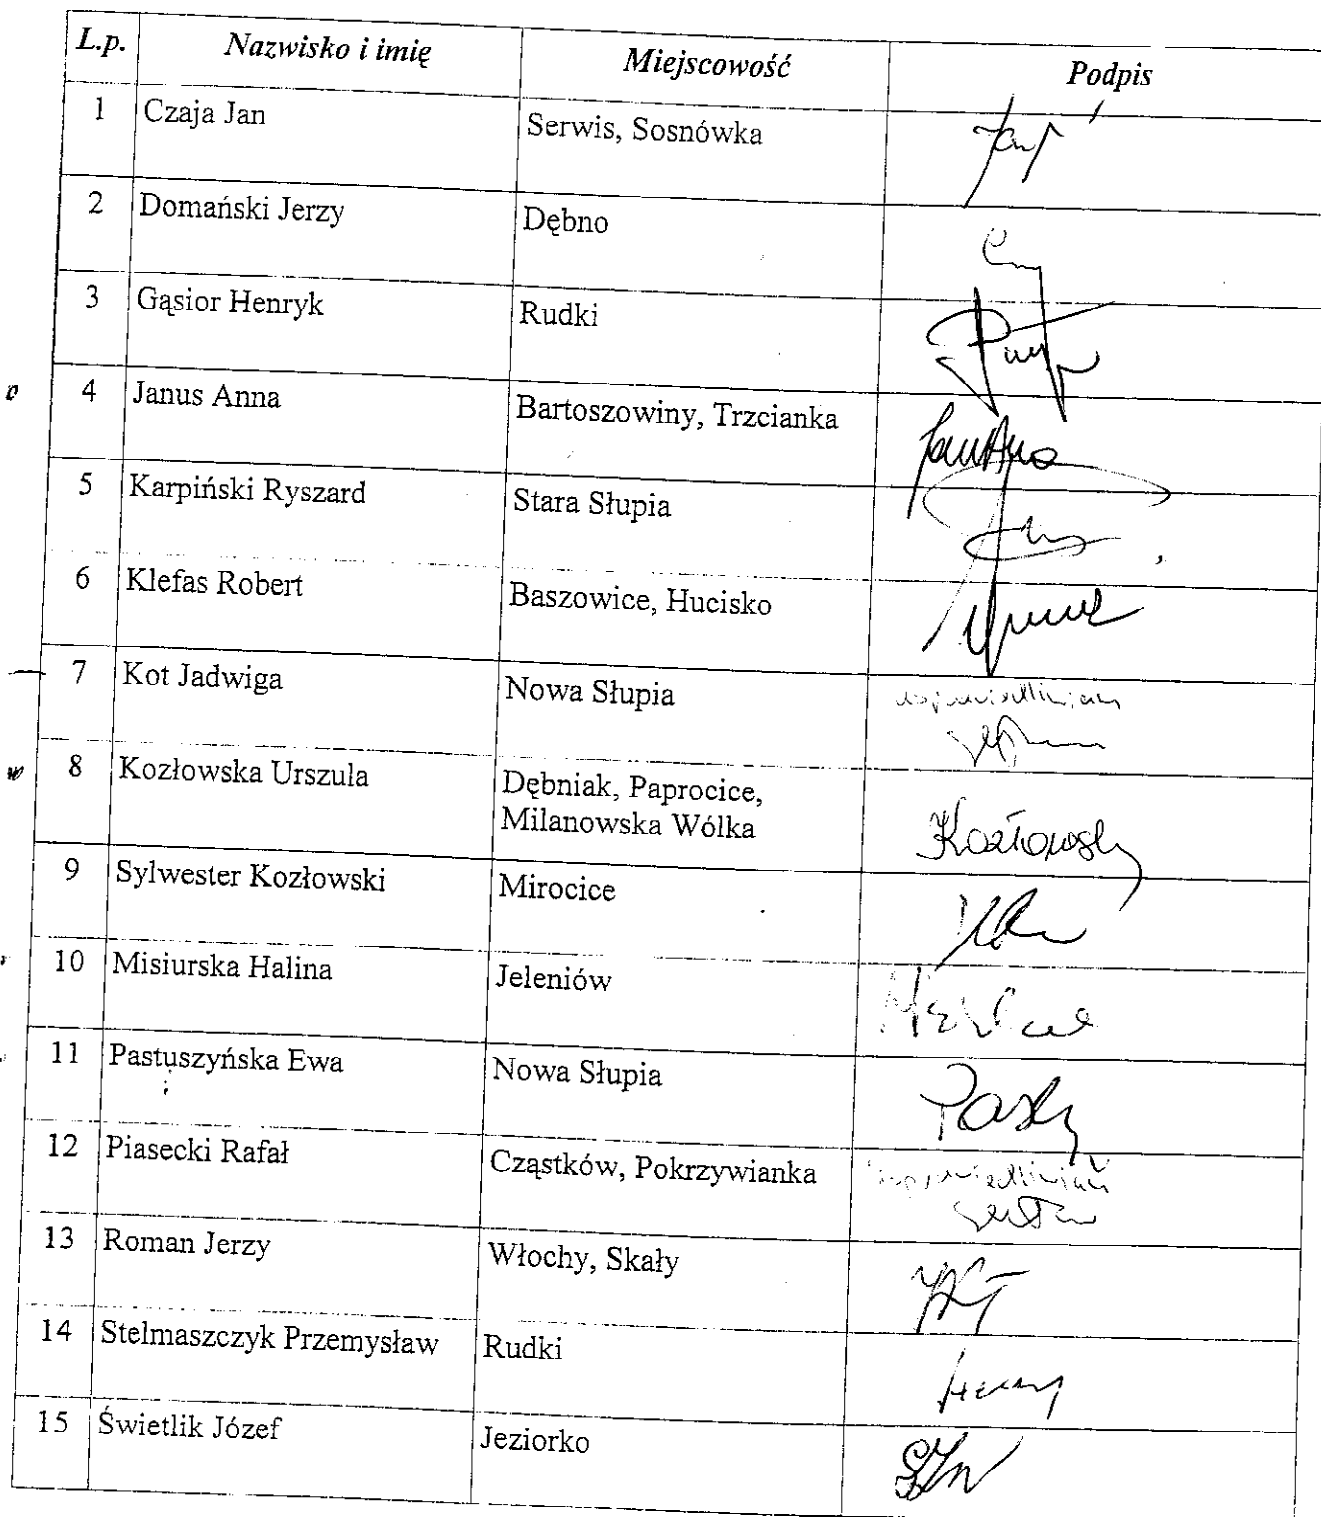 L.p. Nazwisko i imię Miejscowość Podpis
1 Czaja Jan Serwis, Sosnówka
2 Domański Jerzy Dębno
3 Gąsior Henryk Rudki
4 Janus Anna Bartoszowiny, Trzcianka
5 Karpiński Ryszard Stara Słupia
6 Klefas Robert Baszowice, Hucisko
7 Kot Jadwiga Nowa Słupia
8 Kozłowska Urszula Dębniak, Paprocice,
Milanowska Wólka
9 Sylwester Kozłowski Mirocice
10 Misiurska Halina Jeleniów
11 Pastuszyńska Ewa Nowa Słupia
12 Piasecki Rafał Cząstków, Pokrzywianka
13 Roman Jerzy Włochy, Skały
14 Stelmaszczyk Przemysław Rudki
15 Świetlik Józef Jeziorko